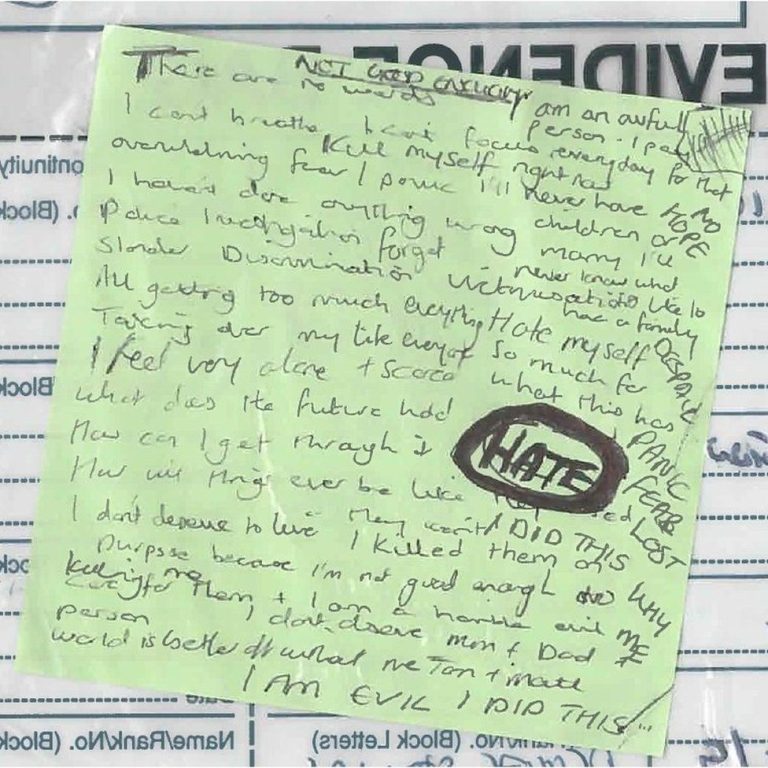 NOT GOOD ENOUGH
There are no words
I am an awful person. I pay
I cant breathe I cant focus everyday for that
overwhelming fear I panic
Kill myself right now
I'll never have NO HOPE
I haven't done anything wrong
children or marry I'll
Police Investigation forget
never know what
Slander Discrimination Victimisation
its like to have a family
All getting too much everything Hate myself DESPAIR
Taking over my life everyday so much for
I feel very alone + scared what this has
What does the future hold
PANIC
How can I get through it
HATE
FEAR
How will things ever be like they used LOST
I don't deserve to live I DID THIS
I killed them on
purpose because I'm not good enough to WHY
care for them + I am a horrible evil ME
Killing me
person I don't deserve mum + Dad
world is better off without me
I AM EVIL I DID THIS
EVIDENCE
Continuity
(Block
Block
Date
Name/Rank/No. (Block Letters)
Name/Rank/No. (Block